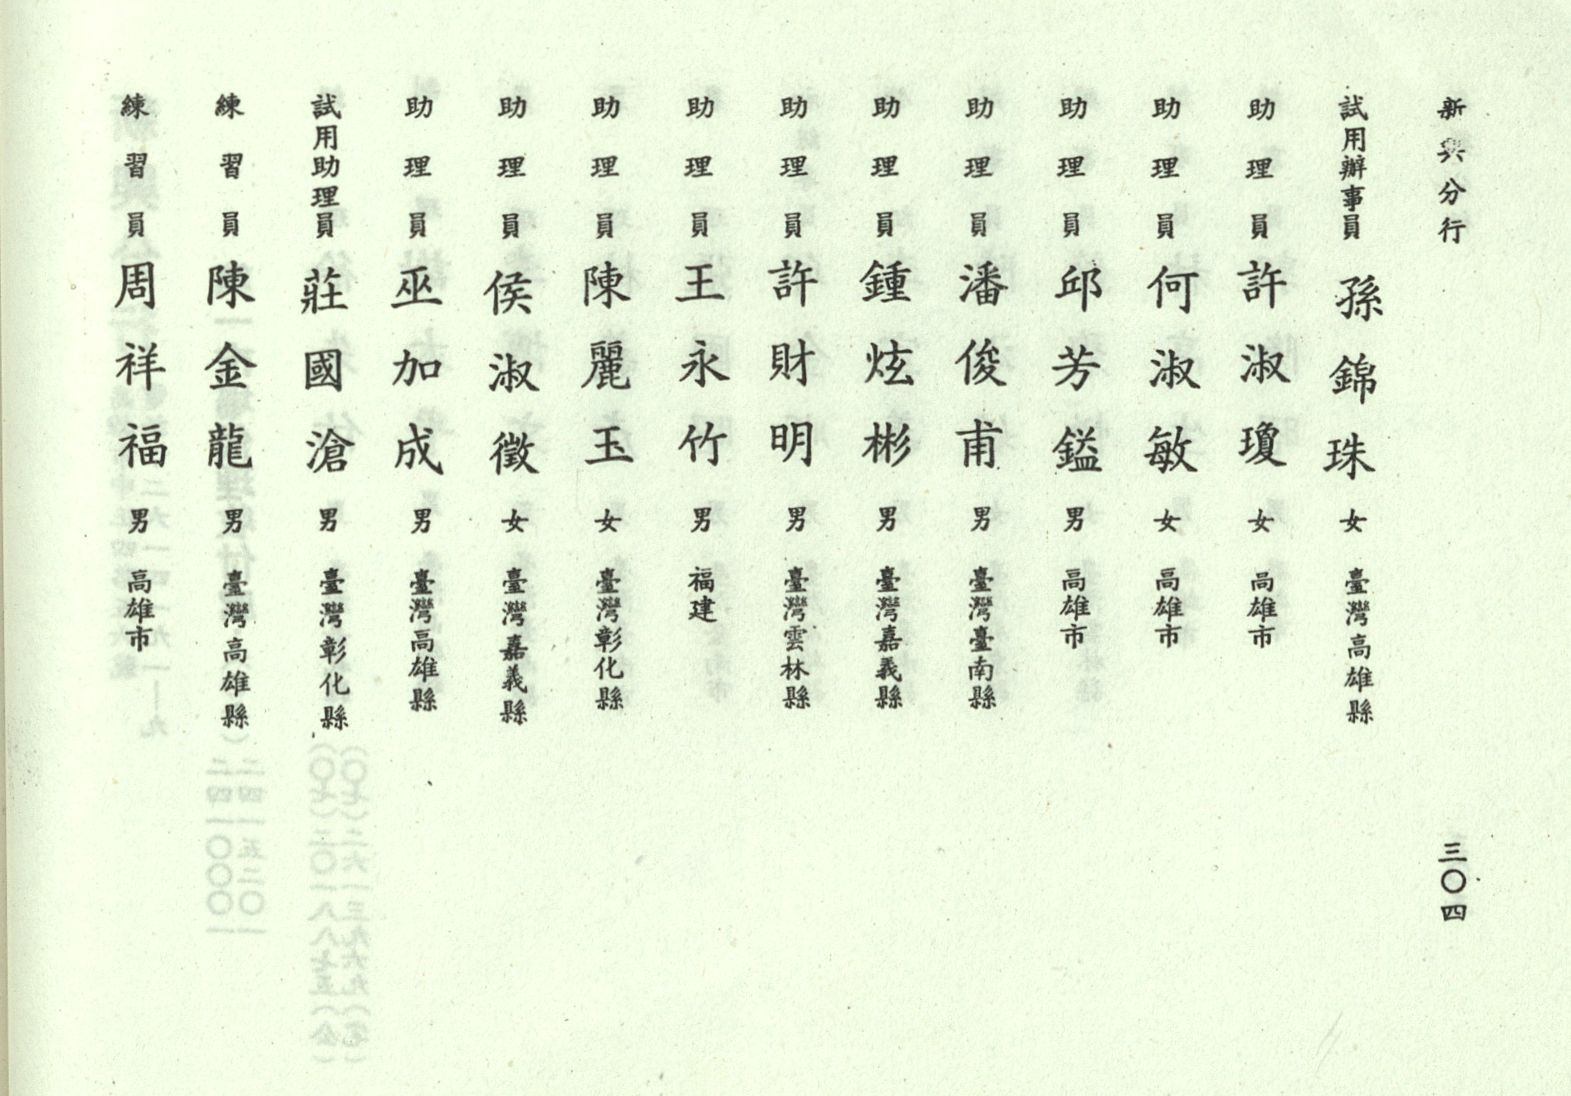 新興分行
三〇四
試用辦事員 孫錦珠 女 臺灣高雄縣
助理員 許淑瓊 女 高雄市
助理員 何淑敏 女 高雄市
助理員 邱芳鎰 男 高雄市
助理員 潘俊甫 男 臺灣臺南縣
助理員 鍾炫彬 男 臺灣嘉義縣
助理員 許財明 男 臺灣雲林縣
助理員 王永竹 男 福建
助理員 陳麗玉 女 臺灣彰化縣
助理員 侯淑徵 女 臺灣嘉義縣
助理員 巫加成 男 臺灣高雄縣
試用助理員 莊國滄 男 臺灣彰化縣
練習員 陳金龍 男 臺灣高雄縣
練習員 周祥福 男 高雄市